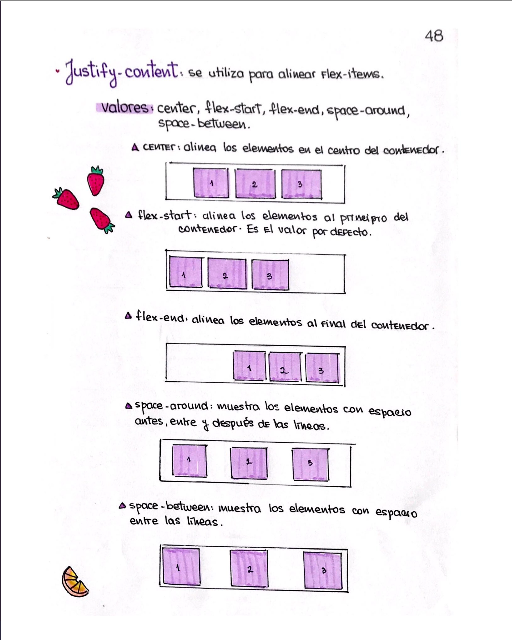 48
Justify-content: se utiliza para alinear Flex-items.
Valores: center, flex-start, flex-end, space-around,
space-between.
CENTER: alinea los elementos en el centro del contenedor.
1 2 3
flex-start: alinea los elementos al principio del
contenedor. Es El valor por defecto.
1 2 3
flex-end: alinea los elementos al final del contenedor.
1 2 3
space-around: muestra los elementos con espacio
antes, entre y después de las líneas.
1 2 3
space-between: muestra los elementos con espacio
entre las líneas.
1 2 3